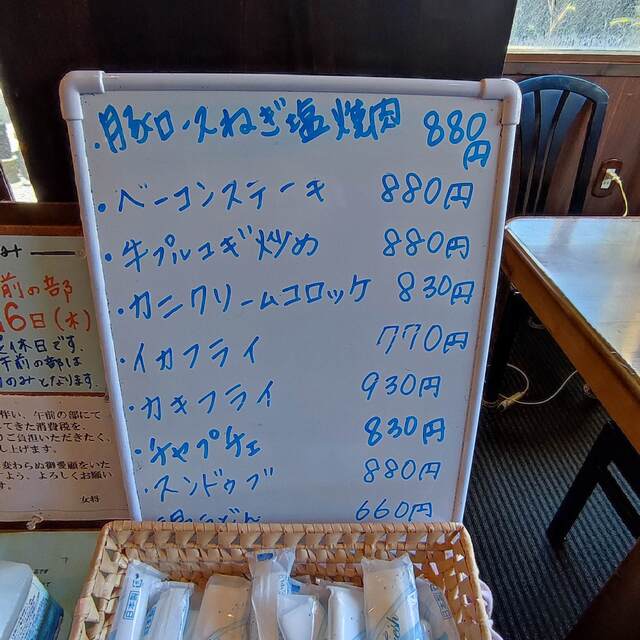 ・豚ロースねぎ塩焼肉 880円
・ベーコンステーキ 880円
・牛プルコギ炒め 880円
・カニクリームコロッケ 830円
・イカフライ 770円
・カキフライ 930円
・チャプチェ 830円
・スンドゥブ 880円
うどん 660円
前の部
6日(木)
休日です。
午前の部は
のみとなります
伴い、午前の部にて
てきた消費税を、
ご負担いただきたく、
し上げます。
変わらぬ御愛顧をいた
よう、よろしくお願い
す。
女将